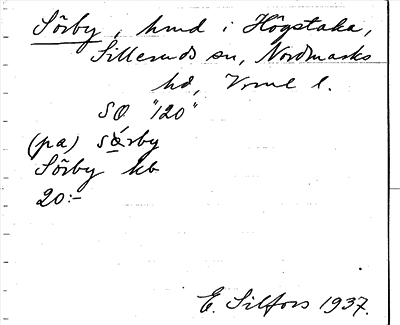 Sörby, hmd i Högstaka,
Silleruds sn, Nordmarks
hd, Vrml l.
SO "120"
(pa) sǿrby
Sörby kb
20:-
E. Silfors 1937.